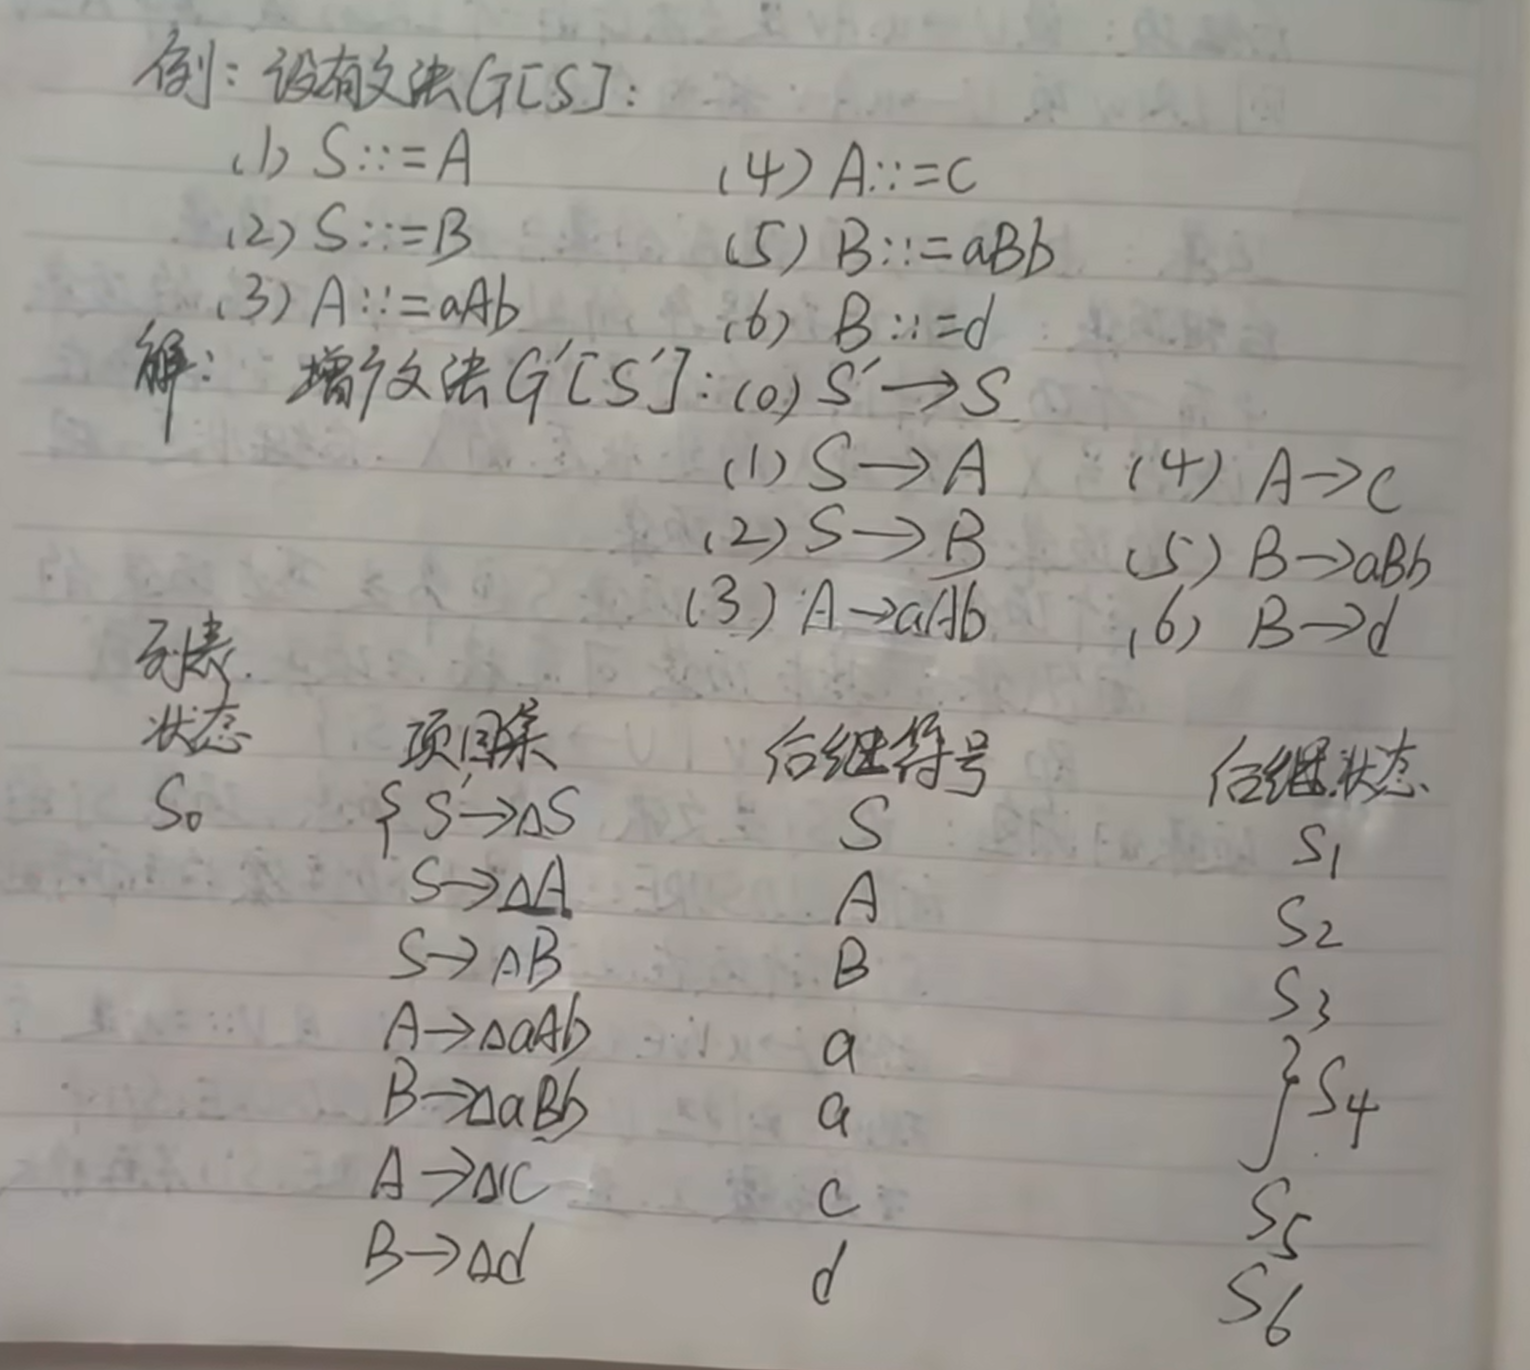 例：设有文法G[S]：
(1) S::=A (4) A::=c
(2) S::=B (5) B::=aBb
(3) A::=aAb (6) B::=d
解： 增广文法G'[S']：(0) S'→S
(1) S→A (4) A→c
(2) S→B (5) B→aBb
(3) A→aAb (6) B→d
列表
状态 项目集 后继符号 后继状态
S0 { S'→△S S S1
S→△A A S2
S→△B B S3
A→△aAb a
B→△aBb a } S4
A→△c c S5
B→△d d S6